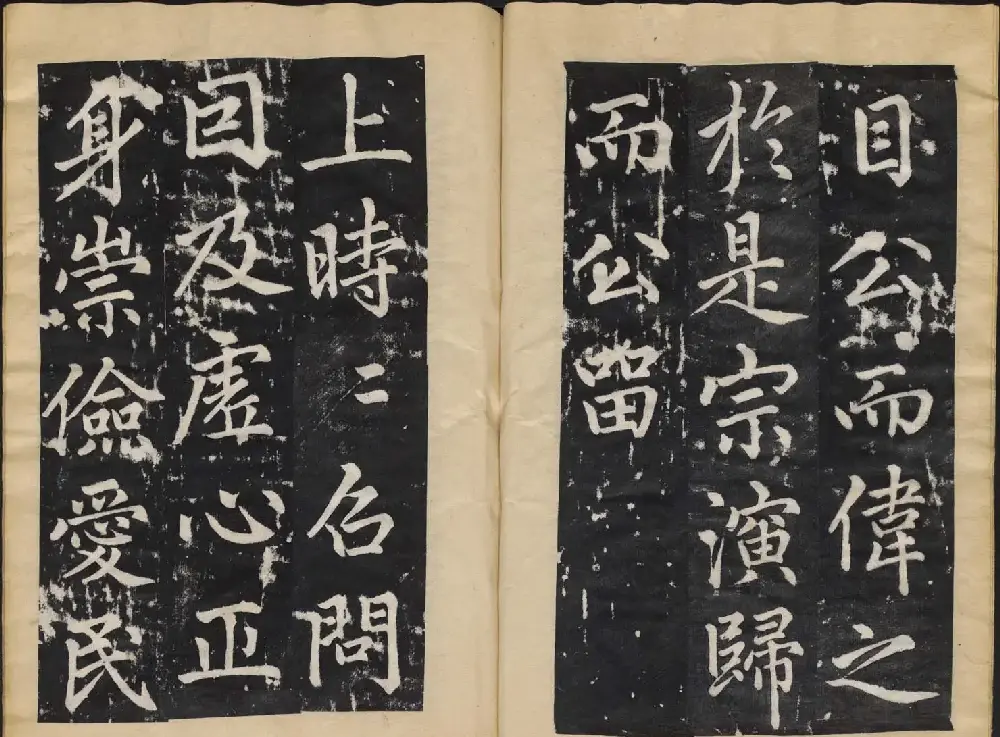 目公而偉之
於是宗演歸
而公留
上時二召問
囙及虛心正
身崇儉愛民